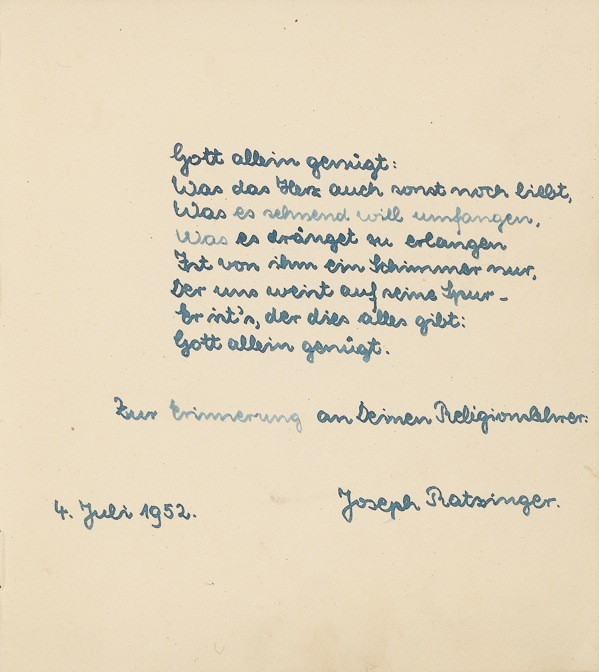 Gott allein genügt:
Was das Herz auch sonst noch liebt,
Was es sehnend will umfangen,
Was es dränget zu erlangen
Ist von ihm ein Schimmer nur,
Der uns weist auf seine Spur -
Er ist's, der dies alles gibt:
Gott allein genügt.
Zur Erinnerung an Deinen Religionslehrer:
4. Juli 1952. Joseph Ratzinger.